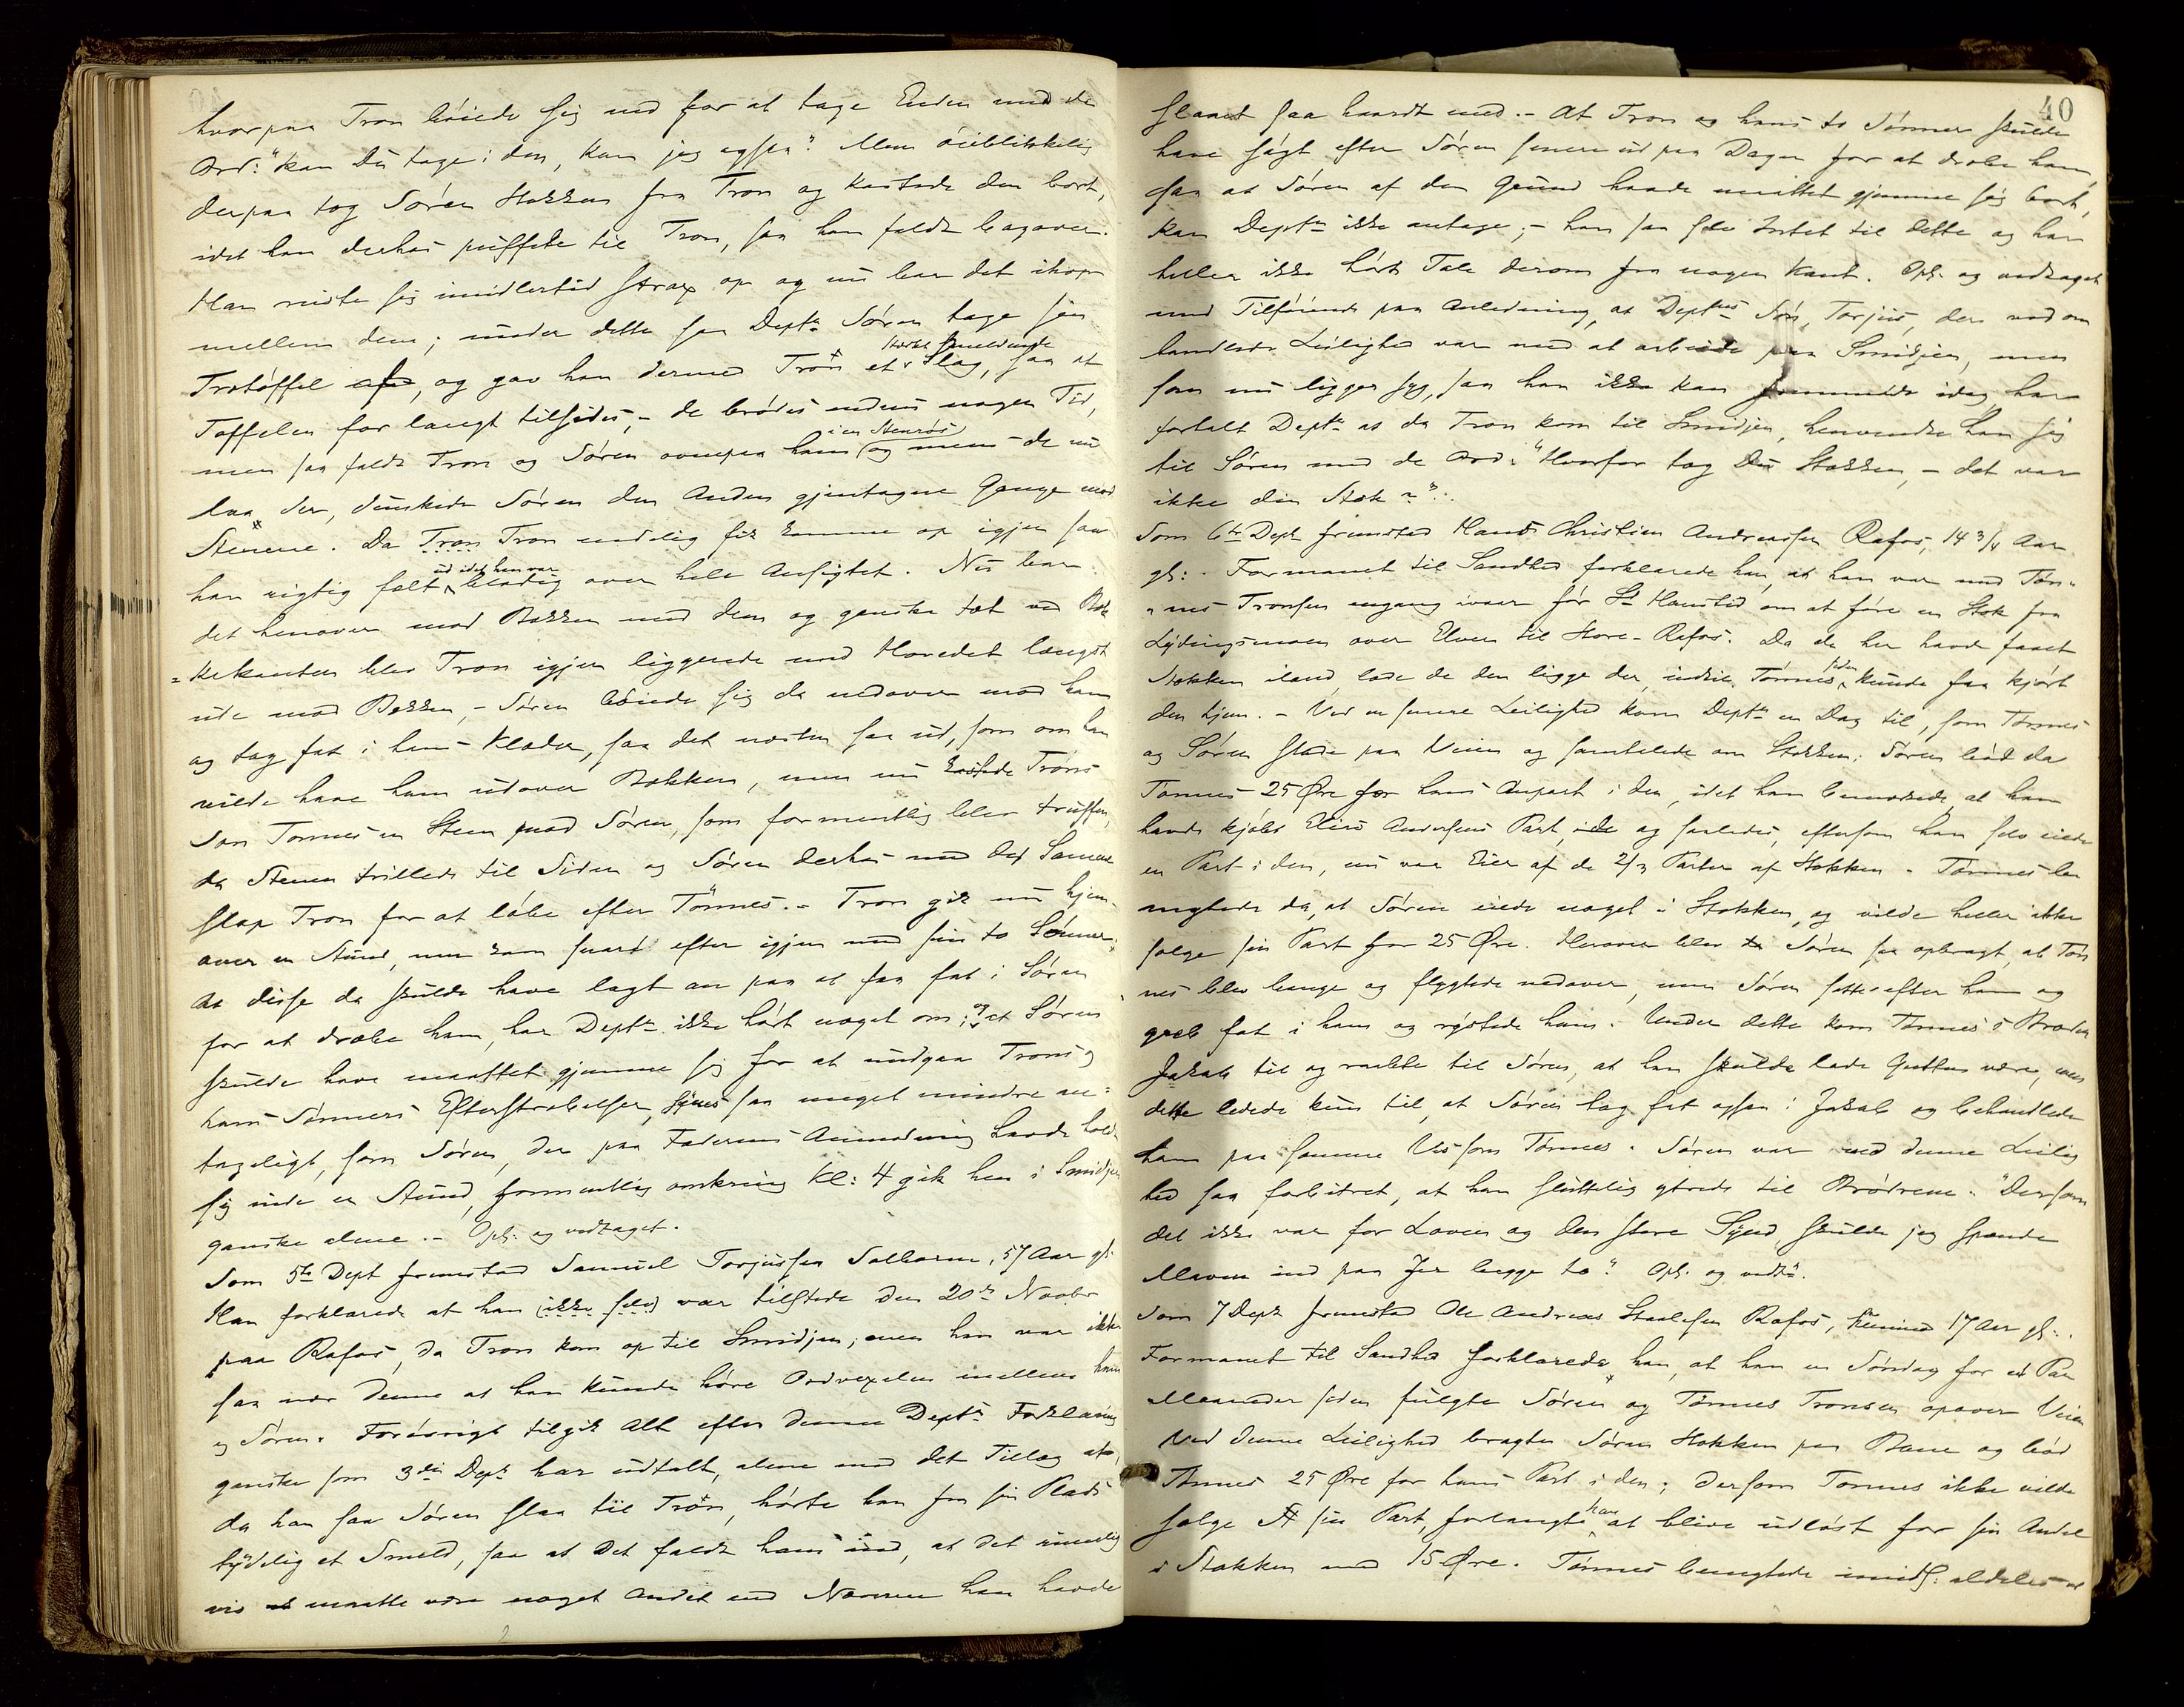 hvorpaa Tron böiede sig ned for at tage Enden med de
Ord: "kan Du tage i den, kan jeg ogsaa". Men öieblikkelig
derpaa tog Sören Stokken fra Tron og kastede den bort,
idet han derhos puffede til Tron, saa han faldt bagover.
Han reiste sig imidlertid strax op og nu bar det ihop
mellem dem; under dette saa Deptn Sören tage sin
Trætöffel af, og gav han dermed Tron et stærkt smeldende Slag, saa at
Töffelen for langt tilsides, - de brödes endnu nogen Tid,
men saa faldt Tron og Sören ovenpaa ham i en Stenrös og mens de nu
laa der, dunkede Sören den Anden gjentagne Gange mod
Stenene. Da Tron Tron endelig fik komme op igjen saa
han rigtig fælt ud idet han var blodig over hele Ansigtet. Nu bar
det henover mod Bækken med dem og ganske tæt ved Bæk
=kekanten blev Tron igjen liggende med Hovedet længst
ude mod Bækken, - Sören böiede sig da nedover mod ham
og tog fat i hans Klæder, saa det næsten saa ud, som om han
vilde have ham udover Bakken, men nu kastede Trons
Sön Tönnes en Sten mod Sören, som formentlig blev truffen,
da Stenen trillede til Siden og Sören derhos med det Samme
slap Tron for at löbe efter Tönnes. - Tron gik nu hjem-
over en Stund, men kom snart efter igjen med sine to Sönner;
at disse da skulde have lagt an paa at faa fat i Sören
for at dræbe ham, har Deptn ikke hört noget om; og at Sören
skulde have maattet gjemme sig for at undgaa Trons og
hans Sönners Efterstræbelser, synes saa meget mindre an=
tageligt, som Sören, der paa Faderens Anmodning havde holdt
sig inde en Stund, formentlig omkring Kl: 4 gik hen i Smidjen
ganske alene. - Opl. og vedtaget.
Som 5te Dept fremstod Samuel Torjussen Solberg, 57 Aar gl.
Han forklarede at han (ikke selv) var tilstede den 20de Novbr
paa Rafos, da Tron kom op til Smidjen; men han var ikke
saa nær denne at han kunde höre Ordvexelen mellem ham
og Sören. Forövrigt tilgik Alt efter denne Deptn Forklaring
ganske som 3die Dept har udtalt, alene med det Tillæg at,
da han saa Sören slaa til Tron, hörte han fra sin Plads
tydelig et Smeld, saa at det faldt ham ind, at det rimelig
vis at maatte være noget Andet end Næven han havde
40
slaaet saa haardt med. - At Tron og hans to Sönner skulde
have sögt efter Sören senere ud paa Dagen for at dræbe ham,
saa at Sören af den Grund havde maattet gjemme sig bort,
kan Deptn ikke antage; - han saa selv Intet til dette og har
heller ikke hört Tale derom fra nogen Kant. Opl. og vedtaget
med Tilföiende paa Anledning, at Deptns Sön, Torjus, der ved om
handlede Leilighed var med at arbeide paa Smidjen, men
som nu ligger syg, saa han ikke kan fremmöde idag, har
fortalt Deptn at da Tron kom til Smidjen, henvendte han sig
til Sören med de Ord: "Hvorfor tog Du Stokken, - det var
ikke din Stok?".
Som 6te Dept fremstod Hans Christian Andreassen Rafos, 14 3/4 Aar
gl: - Formanet til Sandhed forklarede han, at han var med Tön-
-nes Tronsen engang ivaar för St Hanstid om at före en Stok fra
Lydingsmoen over Elven til Store-Rafos. Da de her havde faaet
Stokken iland, lode de den ligge der, indtil Tönnes siden kunde faa kjört
den hjem. - Ved en senere Leilighed kom Deptn en Dag til, som Tönnes
og Sören stode paa Veien og samtalede om Stokken; Sören böd da
Tönnes 25 Øre for hans Anpart i den, idet han bemærkede at han
havde kjöbt Elias Andersens Part, ide og saaledes, eftersom han selv eiede
en Part i den, nu var Eier af de 2/3 Parter af Stokken. Tönnes be
nægtede da, at Sören eiede noget i Stokken, og vilde heller ikke
sælge sin Part for 25 Øre. Herover blev Sören saa opbragt, at Tön
nes blev bange og flygtede nedover, men Sören satte efter ham og
greb fat i ham og rystede ham. Under dette kom Tönnes's Broder
Jakob til og raabte til Sören, at han skulde lade Gutten være, men
dette ledede kun til, at Sören tog fat ogsaa i Jakob og behandlede
ham paa samme Vis som Tönnes. Sören var ved denne Leilig
hed saa forbitret, at han sluttelig ytrede til Brödrene: "Dersom
det ikke var for Loven og den store Synd, skulde jeg spænde
Maven ind paa Jer begge to". Opl. og vedt.
Som 7 Dept fremstod Ole Andreas Staalesen Rafos, 17 Aar gl.
Formanet til Sandhed forklarede han, at han en Söndag for et Par
Maaneder siden fulgte Sören og Tönnes Tronsen opover Veien
Ved denne Leilighed bragte Sören Stokken paa Bane og böd
Tönnes 25 Øre for hans Part i den; dersom Tönnes ikke vilde
sælge sin Part, forlangte han at blive udlöst for sin Andel
i Stokken med 15 Øre. Tönnes benegtede imidl: aldeles at